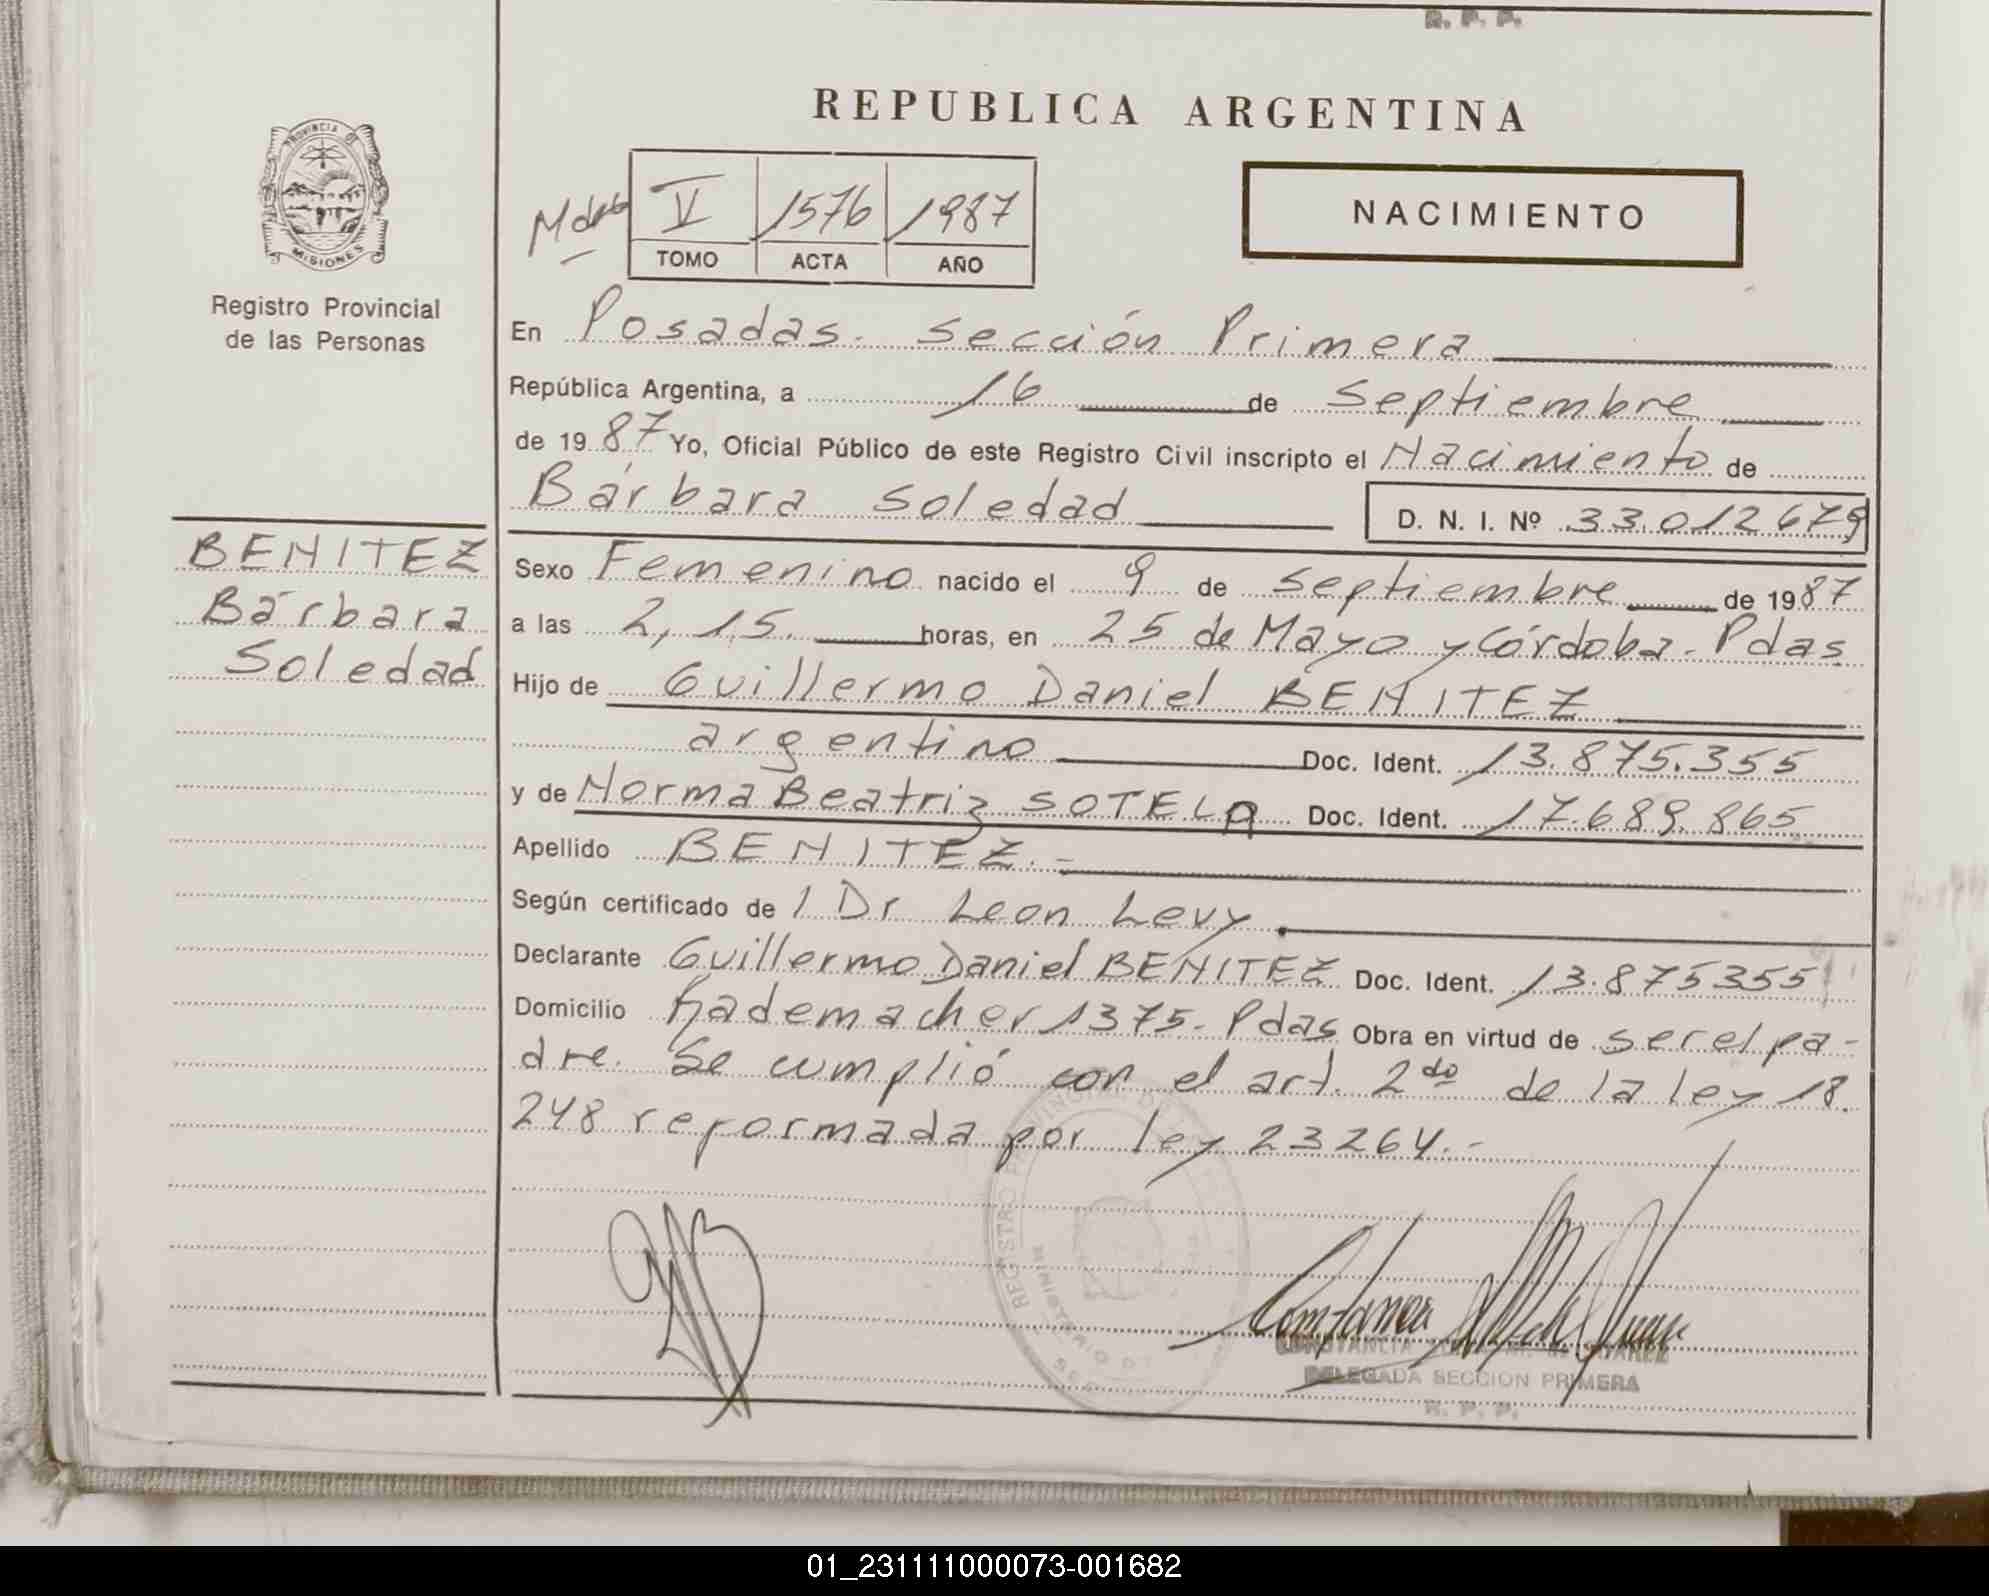 R. P. P.
REPUBLICA ARGENTINA
PROVINCIA DE
MISIONES
Registro Provincial
de las Personas
V 1576 1987
TOMO ACTA AÑO
NACIMIENTO
En Posadas. Sección Primera
República Argentina, a 16 de Septiembre
de 19 87 Yo, Oficial Público de este Registro Civil inscripto el Nacimiento de
Bárbara Soledad D. N. I. Nº 33.012679
BENITEZ
Bárbara
Soledad
Sexo Femenino nacido el 9 de Septiembre de 1987
a las 2,15. horas, en 25 de Mayo y Córdoba. Pdas
Hijo de Guillermo Daniel BENITEZ
argentino Doc. Ident. 13.875.355
y de Norma Beatriz SOTELO Doc. Ident. 17.689.865
Apellido BENITEZ.-
Según certificado de l Dr Leon Levy.
Declarante Guillermo Daniel BENITEZ Doc. Ident. 13.875355
Domicilio Rademacher 1375. Pdas Obra en virtud de ser el pa-
dre. Se cumplió con el art. 2do de la ley 18.
248 reformada por ley 23264.-
REGISTRO PROVINCIAL DE
CONSTANCIA
DELEGADA SECCION PRIMERA
R. P. P.
01_231111000073-001682